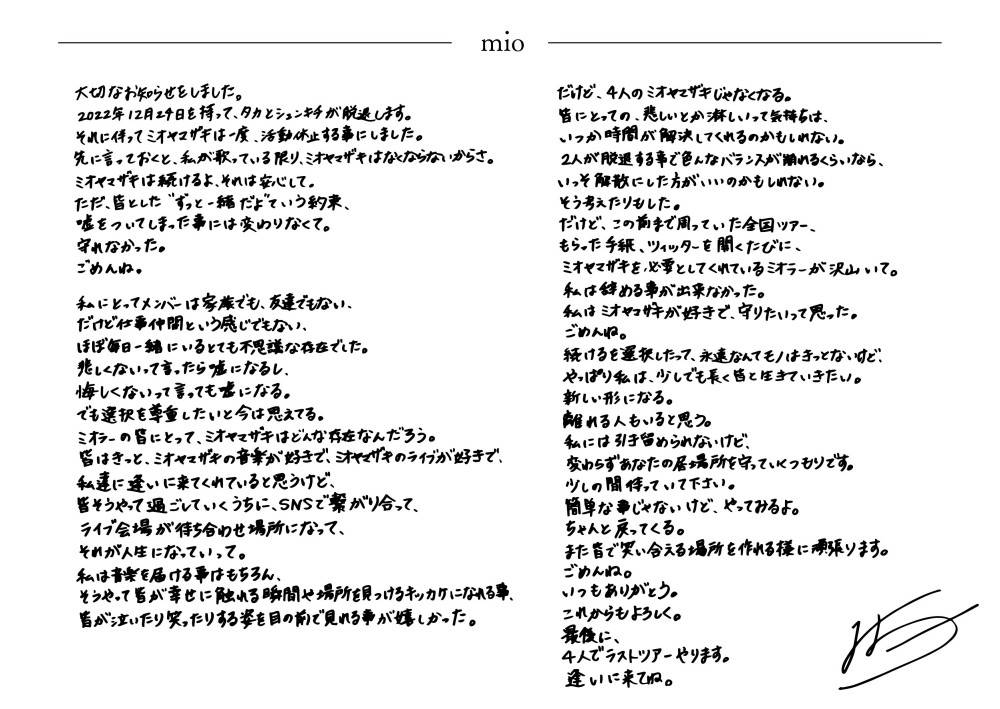 mio
大切なお知らせをしました。
2022年12月29日を持って、タカとシュンキチが脱退します。
それに伴ってミオヤマザキは一度、活動休止する事にしました。
先に言っておくと、私が歌っている限り、ミオヤマザキはなくならないからさ。
ミオヤマザキは続けるよ、それは安心して。
ただ、皆とした"ずっと一緒だよ"ていう約束、
嘘をついてしまった事には変わりなくて。
守れなかった。
ごめんね。
私にとってメンバーは家族でも、友達でもない、
だけど仕事仲間という感じでもない、
ほぼ毎日一緒にいるとても不思議な存在でした。
悲しくないって言ったら嘘になるし、
悔しくないって言っても嘘になる。
でも選択を尊重したいと今は思えてる。
ミオラーの皆にとって、ミオヤマザキはどんな存在なんだろう。
皆はきっと、ミオヤマザキの音楽が好きで、ミオヤマザキのライブが好きで、
私達に逢いに来てくれていると思うけど、
皆そうやって過ごしていくうちに、SNSで繋がり合って、
ライブ会場が待ち合わせ場所になって、
それが人生になっていって。
私は音楽を届ける事はもちろん、
そうやって皆が幸せに触れる瞬間や場所を見つけるキッカケになれる事、
皆が泣いたり笑ったりする姿を目の前で見れる事が嬉しかった。
だけど、4人のミオヤマザキじゃなくなる。
皆にとっての、悲しいとか淋しいって気持ちは、
いつか時間が解決してくれるのかもしれない。
2人が脱退する事で色んなバランスが崩れるくらいなら、
いっそ解散にした方がいいのかもしれない。
そう考えたりもした。
だけど、この前まで周っていた全国ツアー、
もらった手紙、ツイッターを開くたびに、
ミオヤマザキを必要としてくれているミオラーが沢山いて。
私は辞める事が出来なかった。
私はミオヤマザキが好きで、守りたいって思った。
ごめんね。
続けるを選択したって、永遠なんてモノはきっとないけど、
やっぱり私は、少しでも長く皆と生きていきたい。
新しい形になる。
離れる人もいると思う。
私には引き留められないけど、
変わらずあなたの居場所を守っていくつもりです。
少しの間待っていて下さい。
簡単な事じゃないけど、やってみるよ。
ちゃんと戻ってくる。
また皆で笑い合える場所を作れる様に頑張ります。
ごめんね。
いつもありがとう。
これからもよろしく。
最後に、
4人でラストツアーやります。
逢いに来てね。